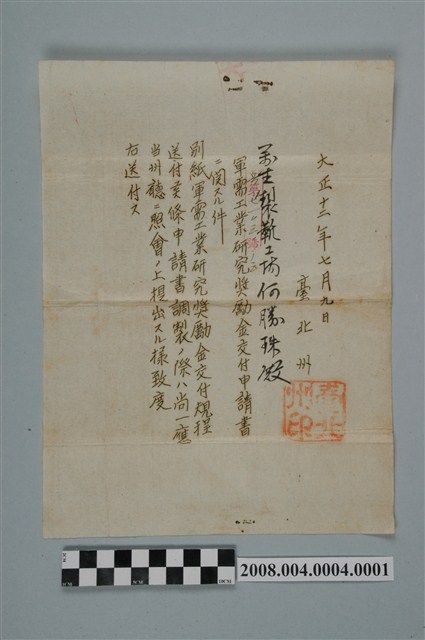 大正十二年七月九日
臺北州
臺北
州印
萬生製靴工場何勝珠殿
軍需工業研究奬勵金交付申請書
ニ関スル件
別紙軍需工業研究奬勵金交付規程
送付貴條申請書調製ノ際ハ尚一應
当州廳ニ照會ノ上提出スル樣致度
右送付ス
10CM
2008.004.0004.0001